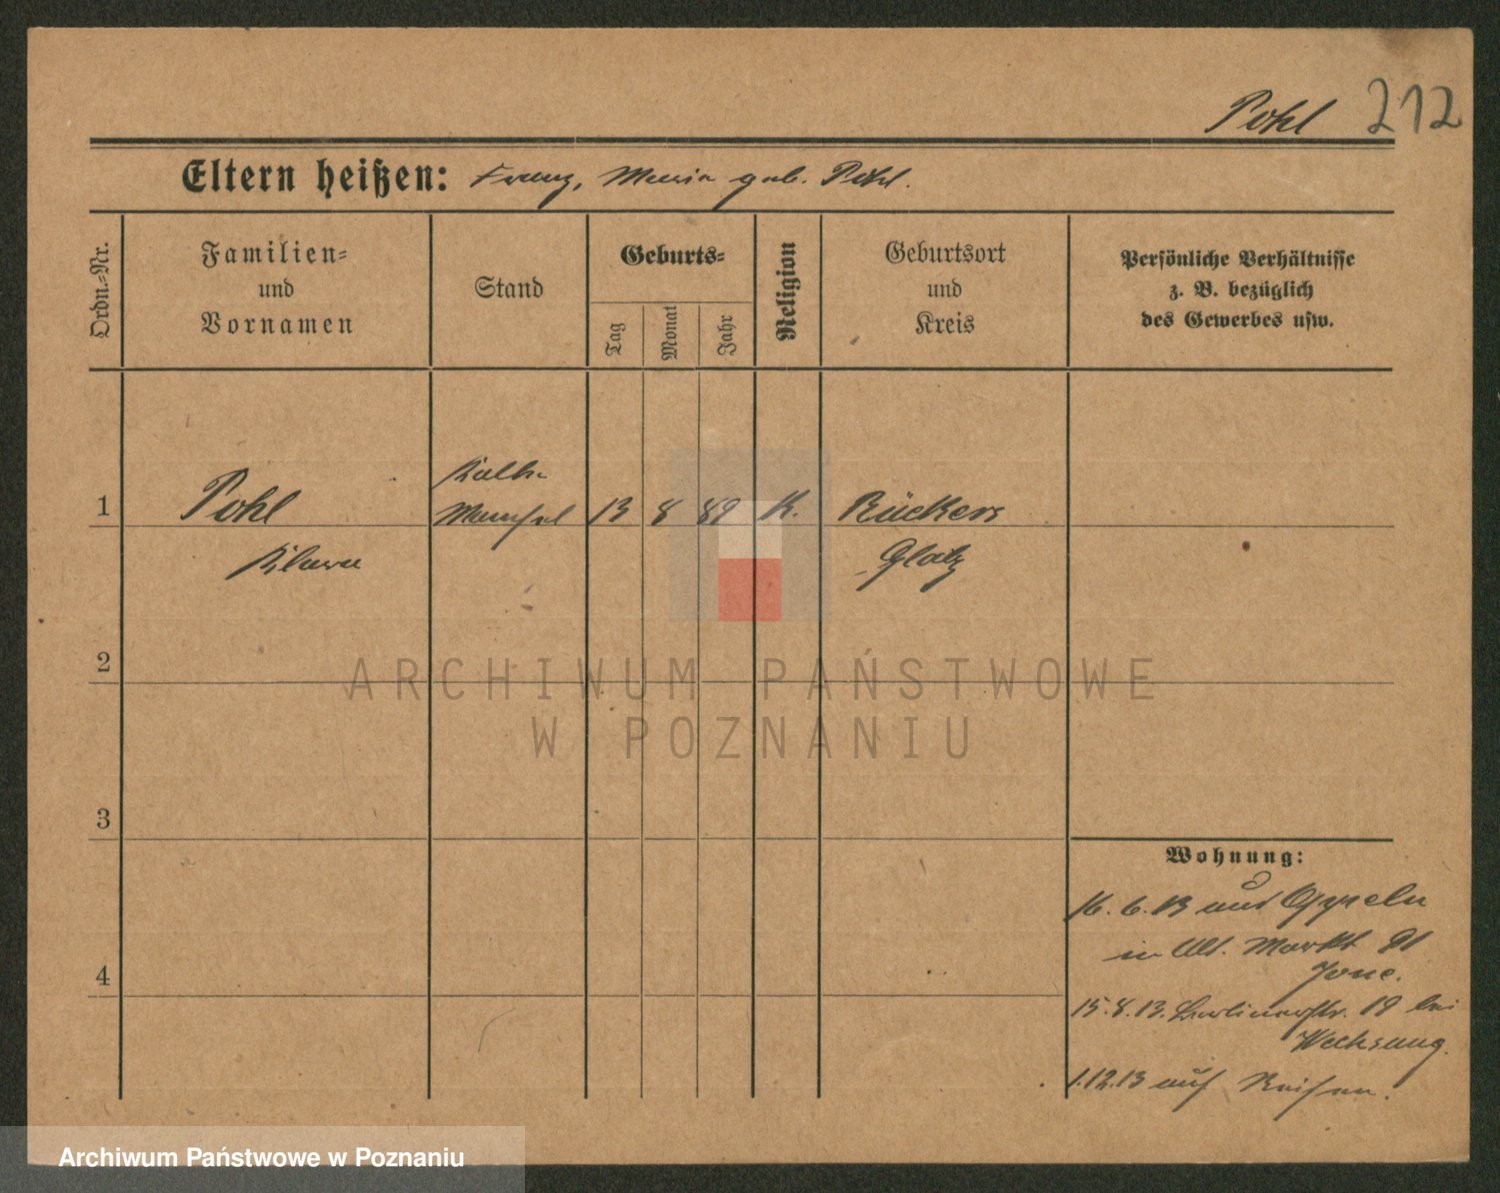 Pohl 212
Eltern heißen: Franz, Maria geb. Pohl.
Ordn.=Nr.
Familien=
und
Vornamen
Stand
Geburts=
Tag
Monat
Jahr
Religion
Geburtsort
und
Kreis
Persönliche Verhältnisse
z. B. bezüglich
des Gewerbes usw.
Kalte
1 Pohl Mamsel 13 8 89 K. Rückers
Klara Glatz
2
3
4
Wohnung:
16. 6. 13 aus Oppeln
in Alt. Markt 91
15. 8. 13. Berlinerstr. 19 bei
Wechsung.
1.12.13 auf Reisen.
ARCHIWUM PAŃSTWOWE
W POZNANIU
Archiwum Państwowe w Poznaniu